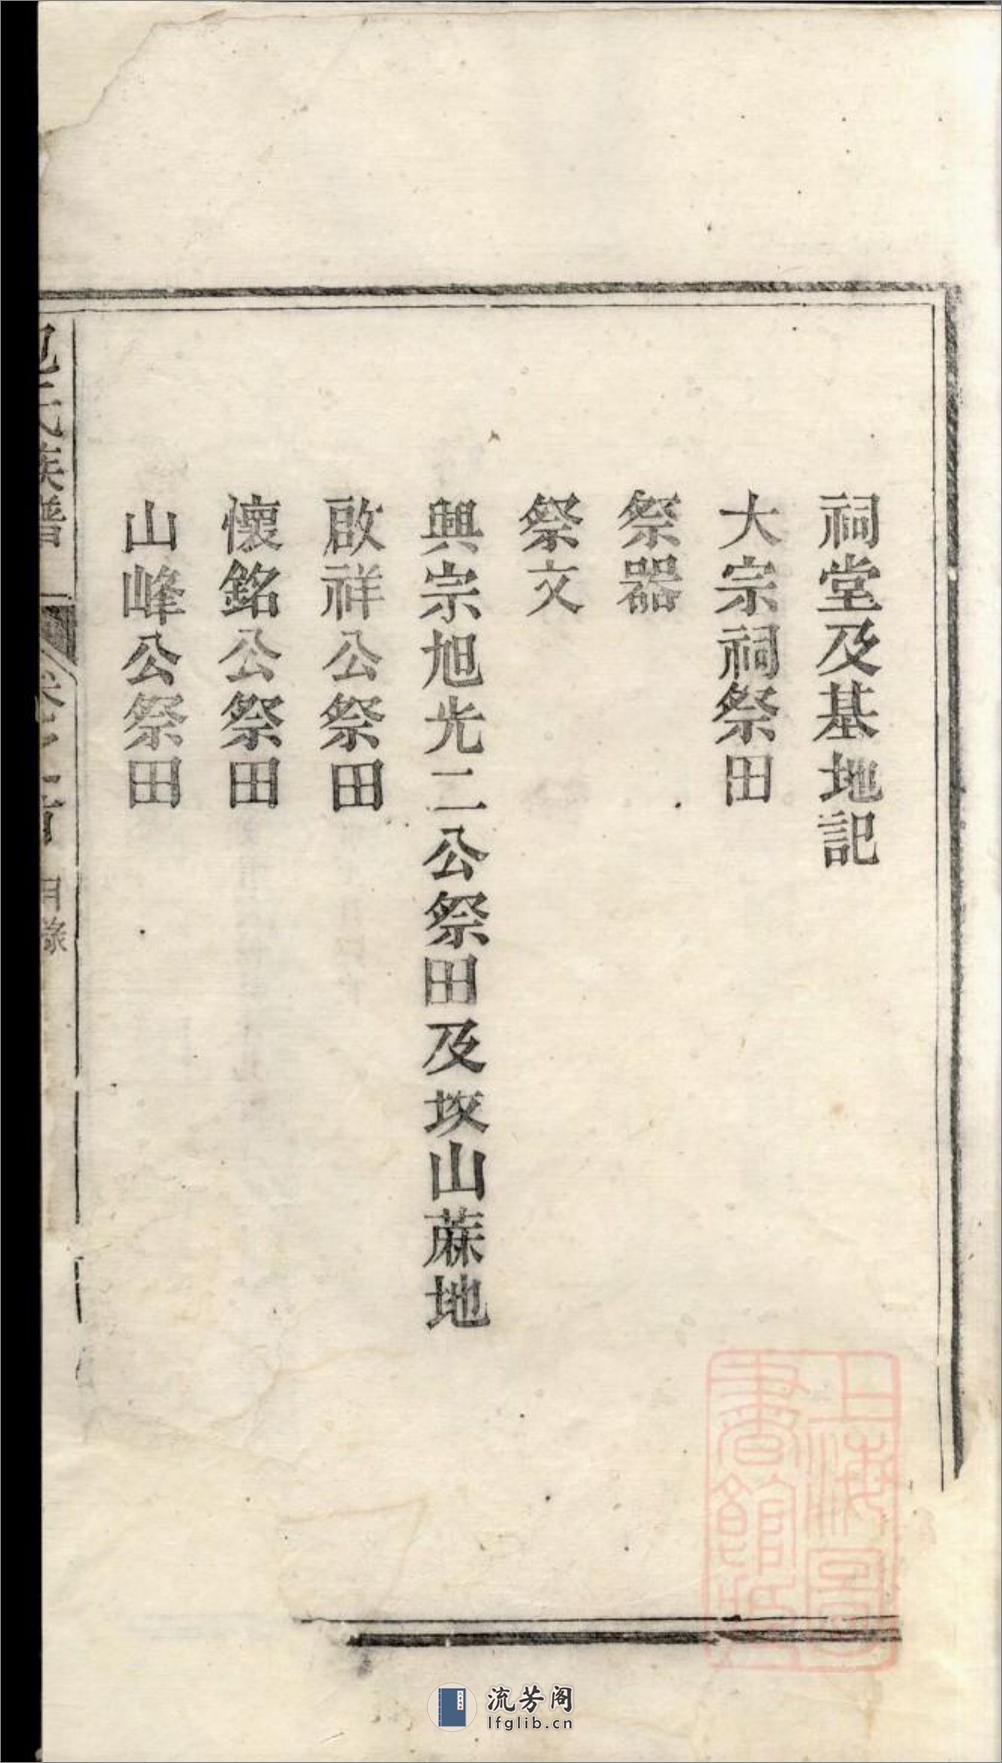 祠堂及基地記
大宗祠祭田
祭器
祭文
興宗旭光二公祭田及坟山蔴地
啟祥公祭田
懷銘公祭田
山峰公祭田
氏族譜
卷之首 目錄
上海圖
書館
流芳阁
lfglib.cn